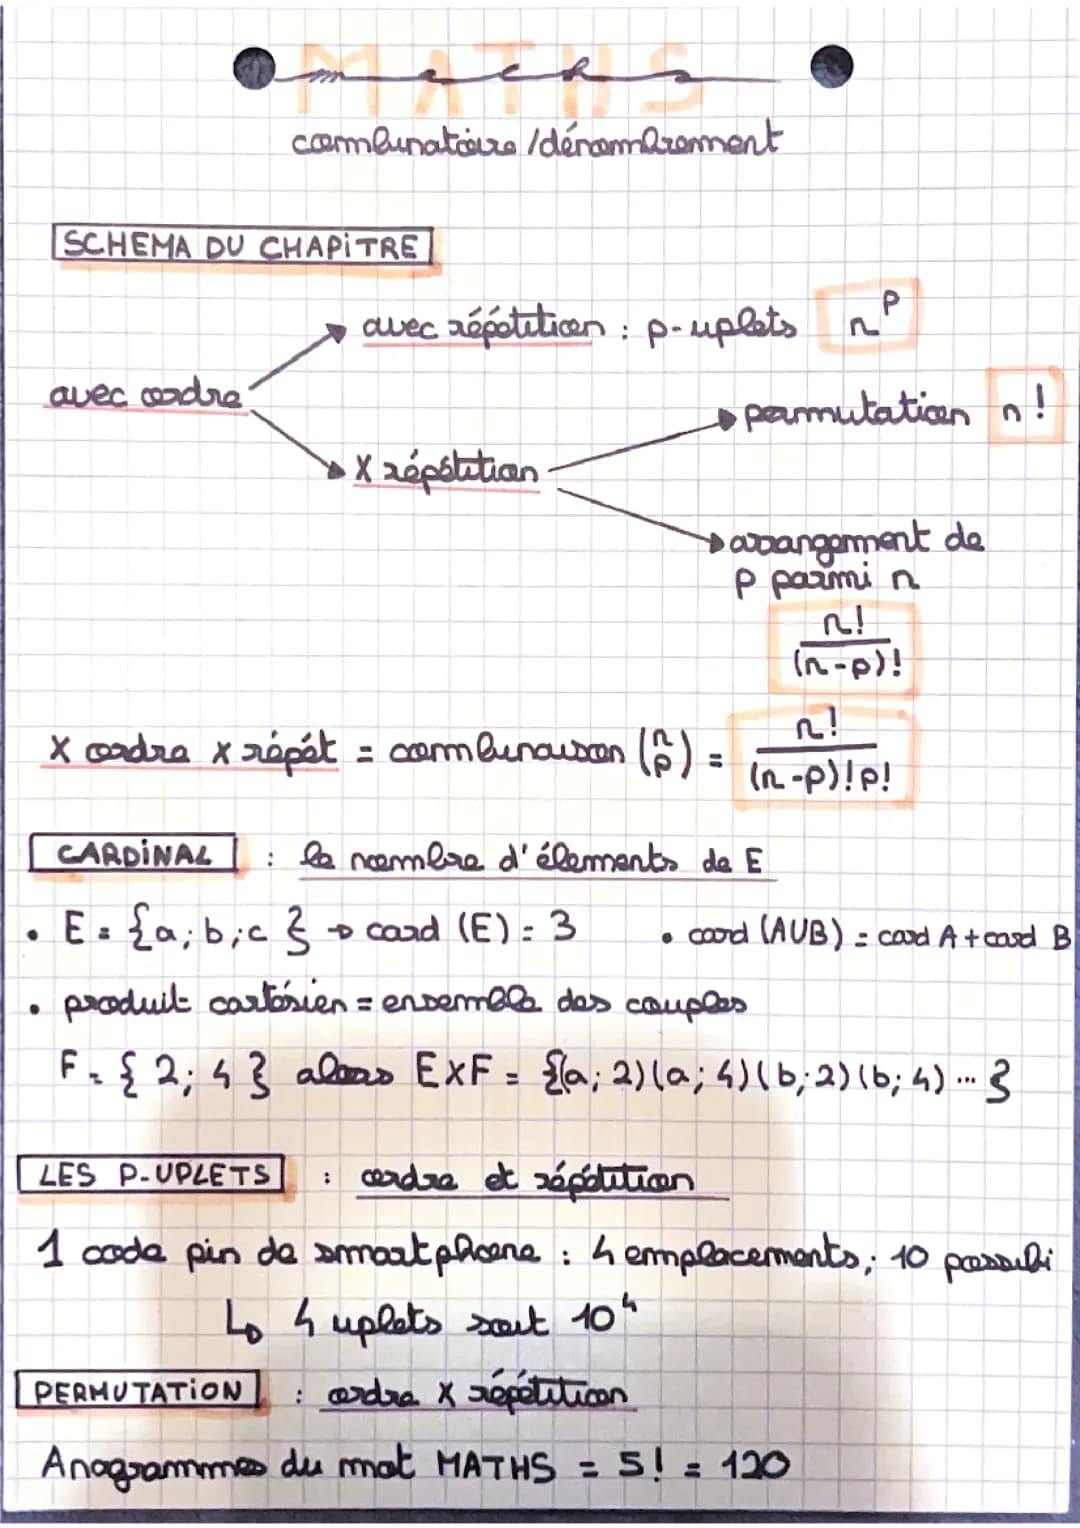 MATHS
maths
combinatoire / dénombrement
SCHEMA DU CHAPiTRE
avec répétition : p-uplets n^p
avec ordre
permutation n!
X répétition
arrangement de
p parmi n
n!
(n-p)!
X ordre X répét = combinaison (n p) = n! / (n-p)!p!
CARDiNAL : le nombre d'élements de E
• E = {a; b; c } → card (E) = 3
• card (AUB) = card A + card B
• produit cartésien = ensemble des couples
F = { 2; 4 } alors ExF = {(a; 2)(a; 4)(b; 2)(b; 4) ... }
LES P-UPLETS : ordre et répétition
1 code pin de smartphone : 4 emplacements; 10 possibi
↳ 4 uplets soit 10^4
PERMUTATiON : ordre X répétition
Anagrammes du mot MATHS = 5! = 120